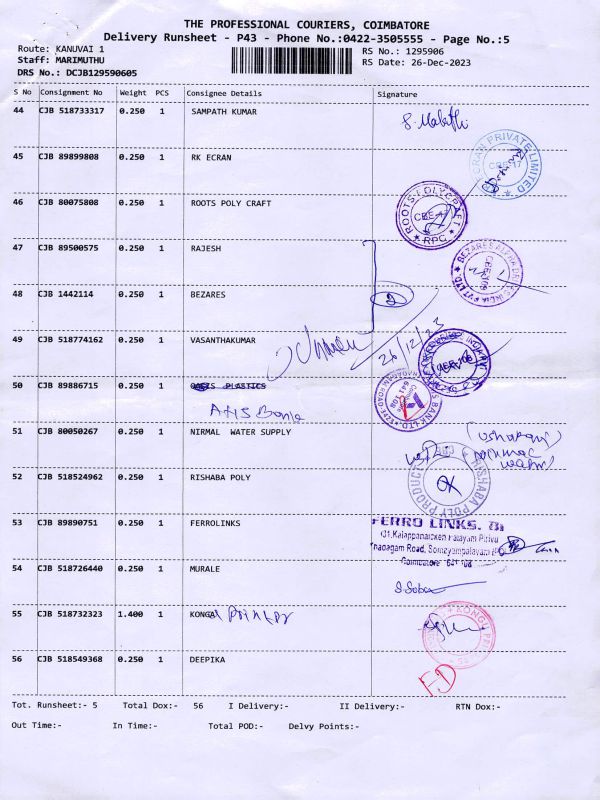 THE PROFESSIONAL COURIERS, COIMBATORE
Delivery Runsheet - P43 - Phone No.:0422-3505555 - Page No.:5
Route: KANUVAI 1
RS No.: 1295906
Staff: MARIMUTHU
RS Date: 26-Dec-2023
DRS No.: DCJB129590605
S No Consignment No Weight PCS Consignee Details Signature
44 CJB 518733317 0.250 1 SAMPATH KUMAR
45 CJB 89899808 0.250 1 RK ECRAN
46 CJB 80075808 0.250 1 ROOTS POLY CRAFT
ROOTS POLYCRAFT
RPC
47 CJB 89500575 0.250 1 RAJESH
48 CJB 1442114 0.250 1 BEZARES
2
49 CJB 518774162 0.250 1 VASANTHAKUMAR
26/12/23
50 CJB 89886715 0.250 1 PLASTICS
51 CJB 80050267 0.250 1 NIRMAL WATER SUPPLY
52 CJB 518524962 0.250 1 RISHABA POLY
RISHABA POLY PRODUCT
53 CJB 89890751 0.250 1 FERROLINKS
FERRO LINKS.
Coimbatore 641 108
54 CJB 518726440 0.250 1 MURALE
55 CJB 518732323 1.400 1 KONGU Printer
56 CJB 518549368 0.250 1 DEEPIKA
FD
Tot. Runsheet:- 5 Total Dox:- 56 I Delivery:- II Delivery:- RTN Dox:-
Out Time:- In Time:- Total POD:- Delvy Points:-